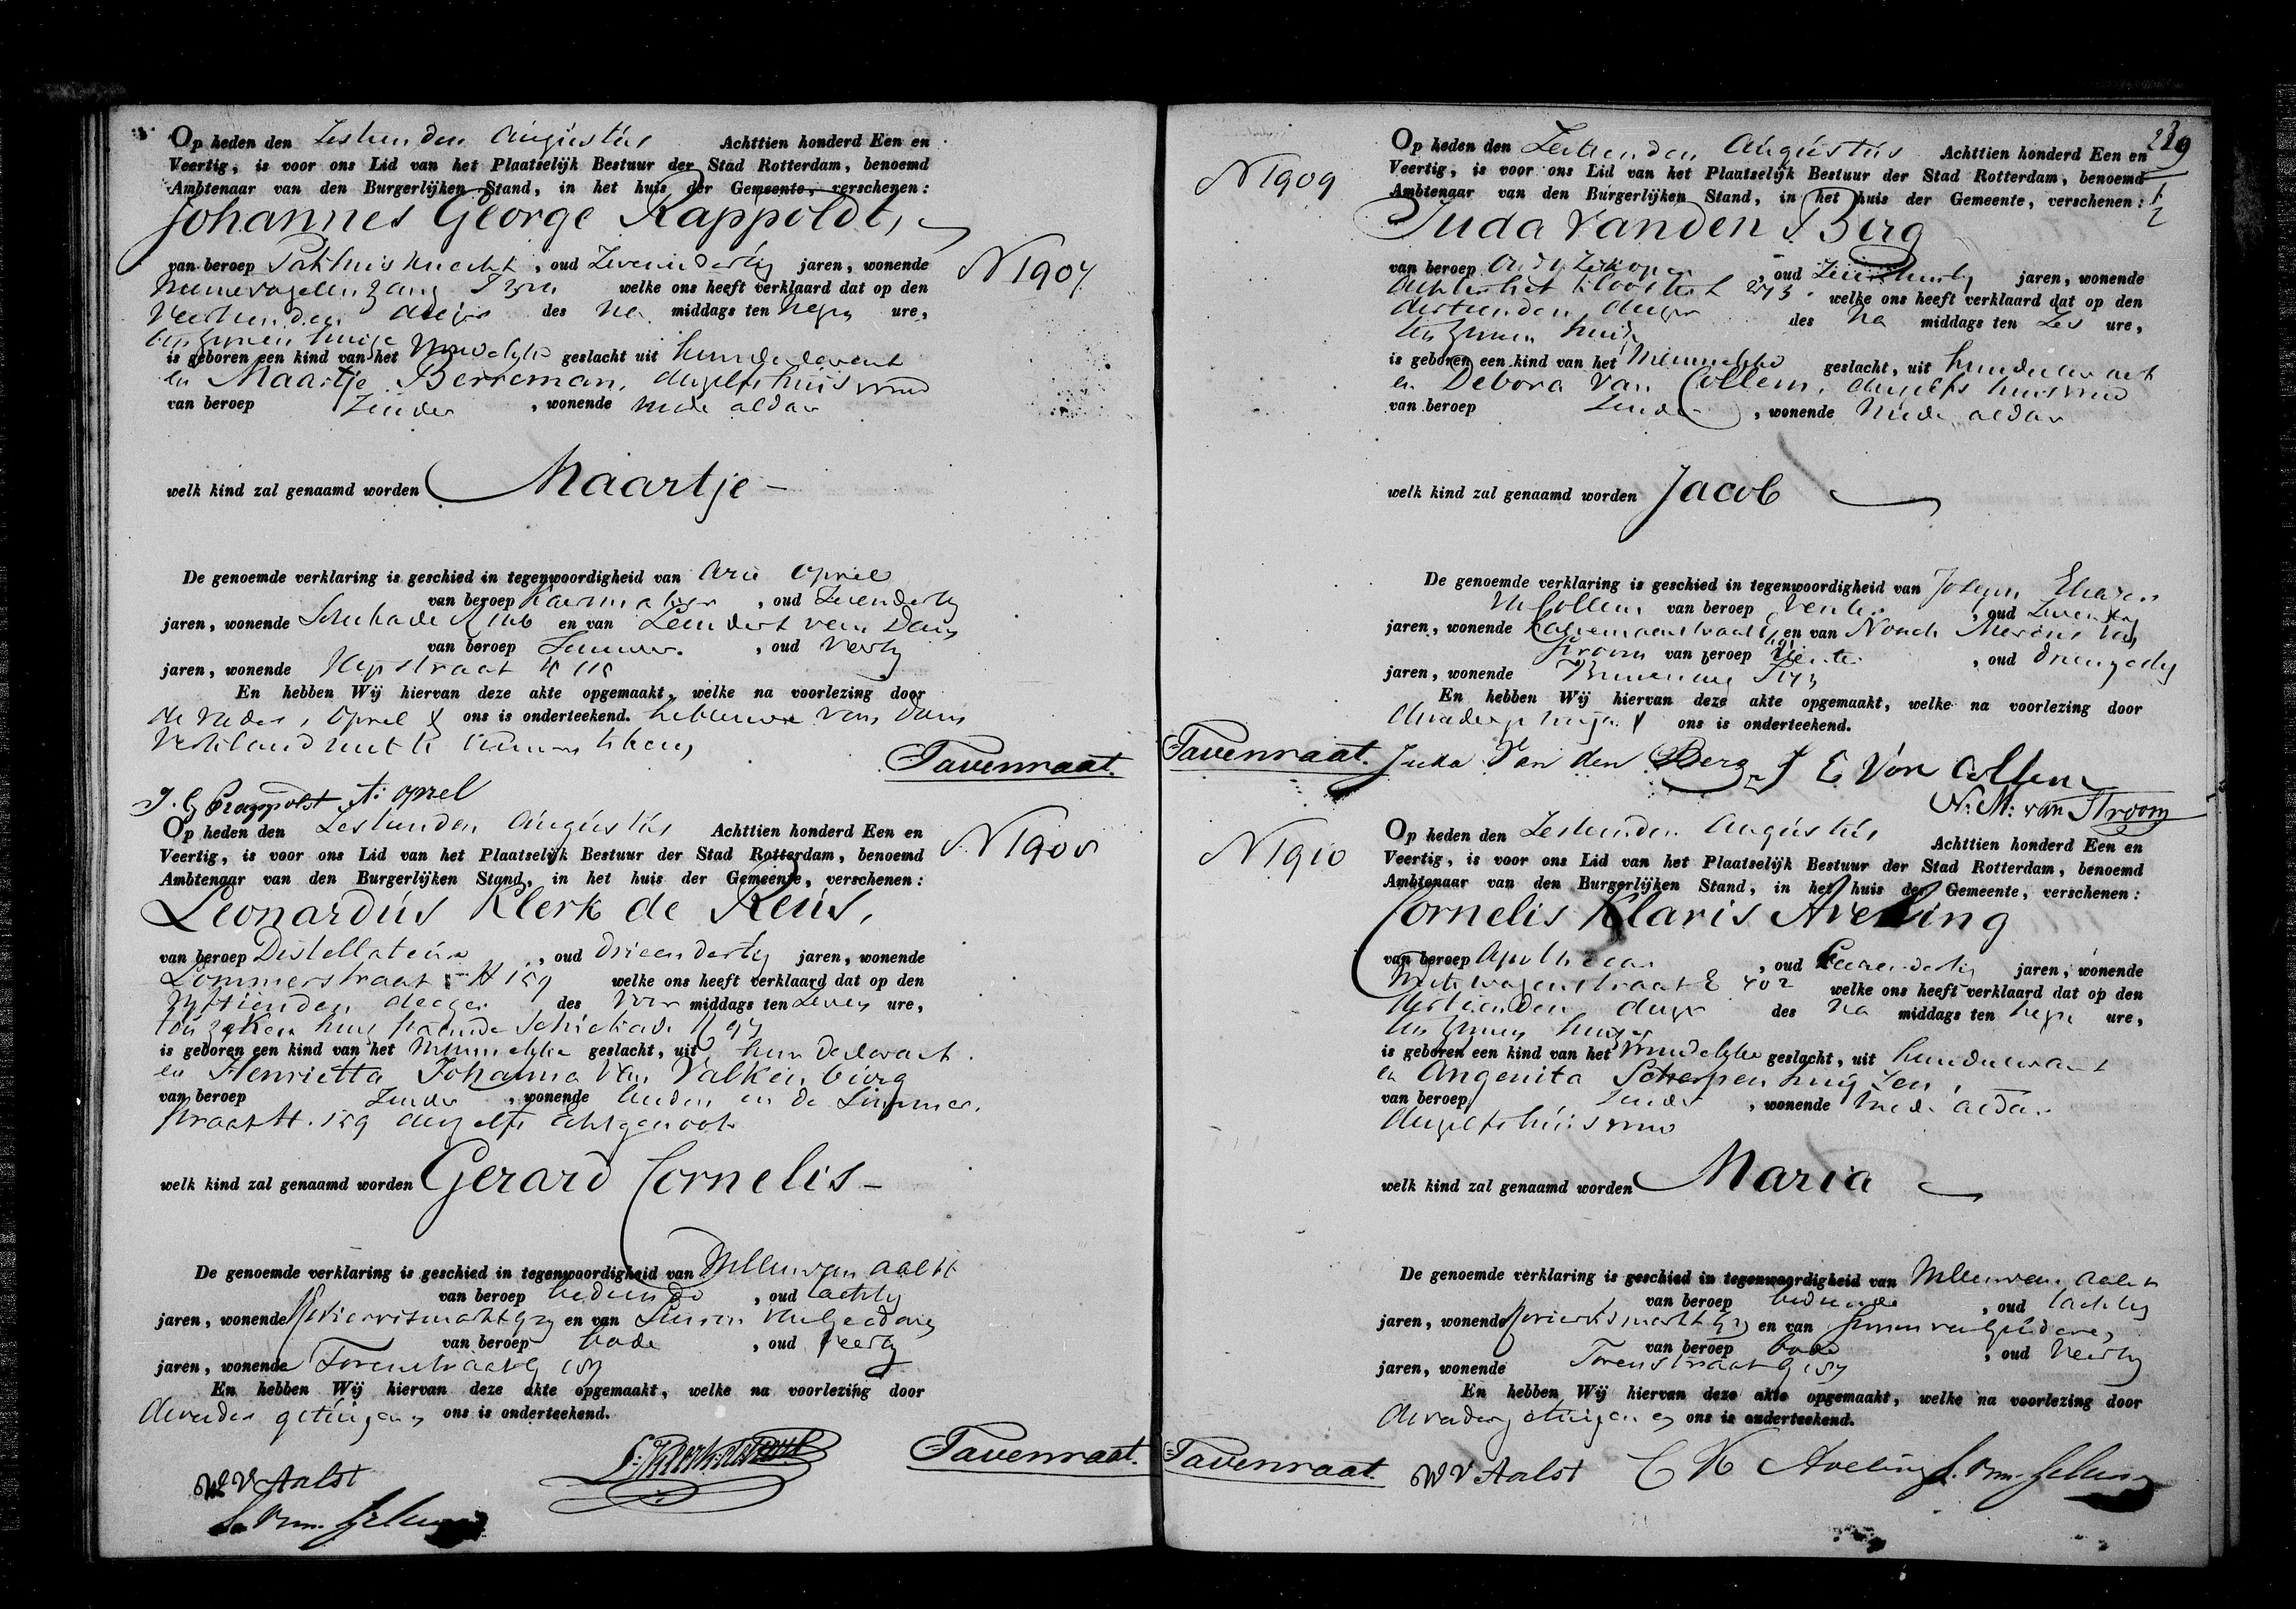 Op heden den Zestienden Augustus Achttien honderd Een en
Veertig, is voor ons Lid van het Plaatselijk Bestuur der Stad Rotterdam, benoemd
Ambtenaar van den Burgerlijken Stand, in het huis der Gemeente, verschenen:
Johannes George Rappoldt,
van beroep Pakhuisknecht, oud Zevenendertig jaren, wonende
N 1907
welke ons heeft verklaard dat op den
Veertienden dezer des Na middags ten negen ure,
ten zijnen huize
is geboren een kind van het Vrouwelijke geslacht uit hem declarant
en Maartje Berreman, deszelfs huisvrouw
van beroep Zonder, wonende mede aldaar
welk kind zal genaamd worden Maartje
De genoemde verklaring is geschied in tegenwoordigheid van Arie Oprel
van beroep, oud
jaren, wonende en van Leendert van Dam
van beroep, oud Veertig
jaren, wonende
En hebben Wij hiervan deze akte opgemaakt, welke na voorlezing door
de Vader, Oprel & ons is onderteekend. hebbende van Dam
Verklaard niet te kunnen schrijven
Tavenraat.
J. G Rappoldt A: oprel
Op heden den Zestienden Augustus Achttien honderd Een en
N 1908
Veertig, is voor ons Lid van het Plaatselijk Bestuur der Stad Rotterdam, benoemd
Ambtenaar van den Burgerlijken Stand, in het huis der Gemeente, verschenen:
Leonardus Klerk de Reus,
van beroep Distellateur, oud Drieendertig jaren, wonende
Lommerstraat H 159 welke ons heeft verklaard dat op den
Vijftienden dezer des Voor middags ten Zeven ure,
is geboren een kind van het Mannelijke geslacht, uit hem declarant
en Henrietta Johanna Van Valkenburg
van beroep Zonder, wonende in de Lommer
straat H. 159 deszelfs Echtgenoote
welk kind zal genaamd worden Gerard Cornelis
De genoemde verklaring is geschied in tegenwoordigheid van Willem van Aalst
van beroep bediende, oud tachtig
jaren, wonende en van Simon van Gelderen
van beroep bode, oud Veertig
jaren, wonende Torenstraat G 157
En hebben Wij hiervan deze akte opgemaakt, welke na voorlezing door
de vader getuigen en ons is onderteekend.
L: Klerk de Reus
Tavenraat.
W V Aalst
S. van Gelderen
239
Op heden den Zestienden Augustus Achttien honderd Een en
N 1909
Veertig, is voor ons Lid van het Plaatselijk Bestuur der Stad Rotterdam, benoemd
Ambtenaar van den Burgerlijken Stand, in het huis der Gemeente, verschenen:
Juda Van den Berg
van beroep, oud jaren, wonende
Achter het Klooster welke ons heeft verklaard dat op den
dertienden dezer des Na middags ten Zes ure,
ten zijnen huize
is geboren een kind van het Mannelijke geslacht, uit hem declarant
en Debora Van Collem, deszelfs huisvrouw
van beroep Zonder, wonende Mede aldaar
welk kind zal genaamd worden Jacob
De genoemde verklaring is geschied in tegenwoordigheid van Joseph
van Collem van beroep Venter, oud
jaren, wonende en van Noach Mozes Van
Stroom van beroep Venter, oud
jaren, wonende
En hebben Wij hiervan deze akte opgemaakt, welke na voorlezing door
de vader getuigen & ons is onderteekend.
Tavenraat. Juda Van den Berg J E Von Collem
N: M: van Stroom
Op heden den Zestienden Augustus Achttien honderd Een en
N 1910
Veertig, is voor ons Lid van het Plaatselijk Bestuur der Stad Rotterdam, benoemd
Ambtenaar van den Burgerlijken Stand, in het huis der Gemeente, verschenen:
Cornelis Klaris Aveling
van beroep Apotheker, oud Eenendertig jaren, wonende
welke ons heeft verklaard dat op den
dertienden dezer des Na middags ten negen ure,
ten zijnen huize
is geboren een kind van het Vrouwelijke geslacht, uit hem declarant
en Angenita Scherpenhuijzen,
van beroep Zonder, wonende mede aldaar
deszelfs huisvrouw
welk kind zal genaamd worden Maria
De genoemde verklaring is geschied in tegenwoordigheid van Willem van Aalst
van beroep bediende, oud tachtig
jaren, wonende en van Simon van Gelderen
van beroep bode, oud Veertig
jaren, wonende Torenstraat G 157
En hebben Wij hiervan deze akte opgemaakt, welke na voorlezing door
de vader getuigen en ons is onderteekend.
Tavenraat. W V Aalst C K Aveling S. van Gelderen